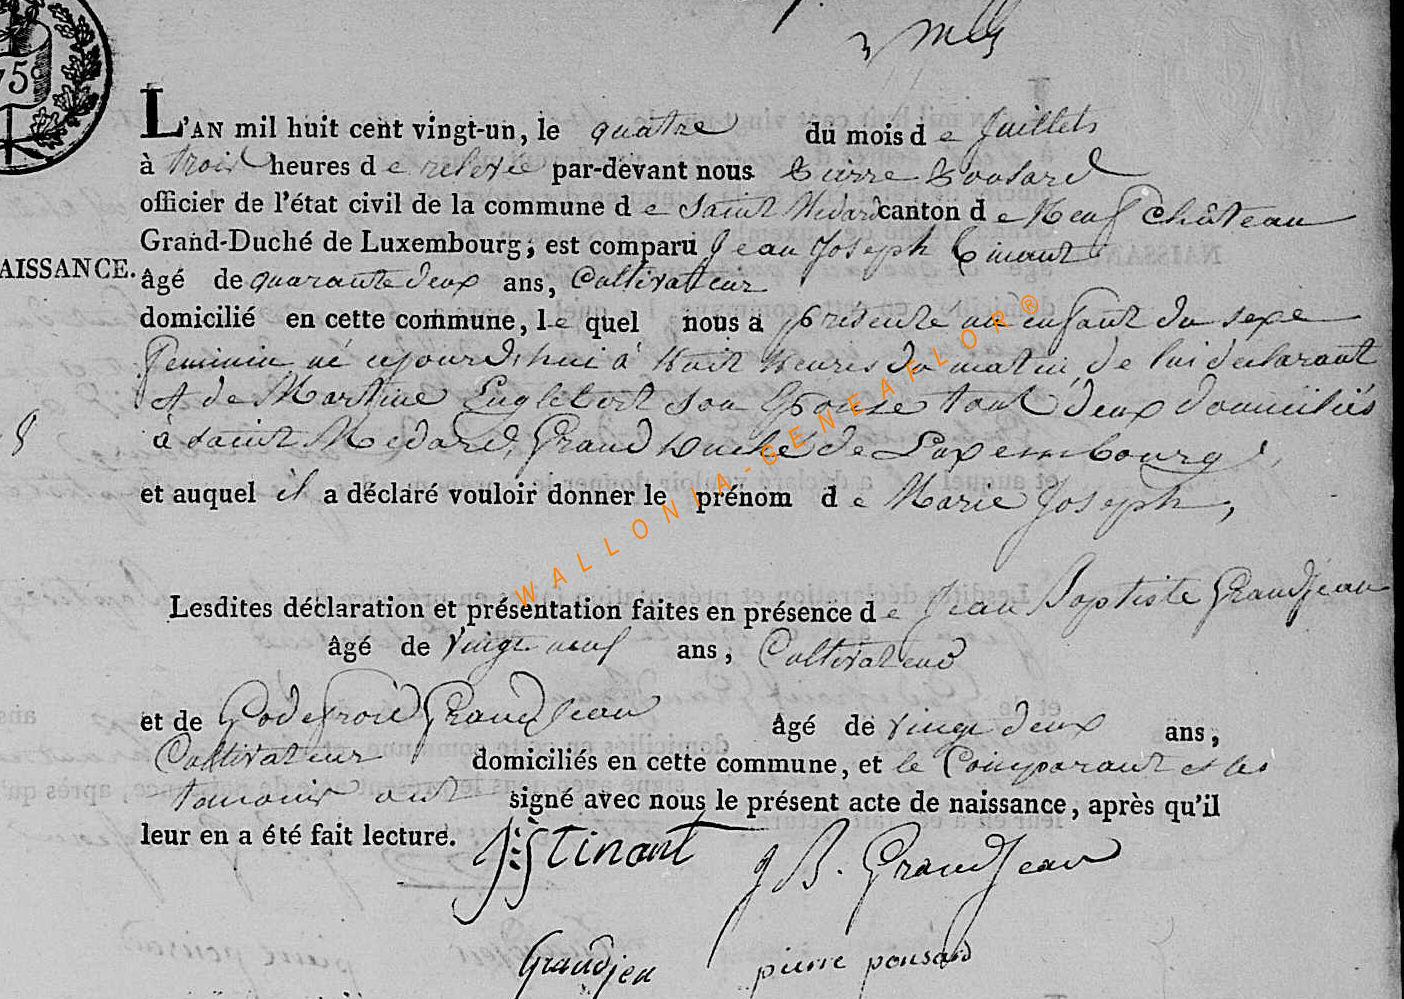 75
L'AN mil huit cent vingt-un, le quatre du mois de Juillets
à trois heures de relevée par-devant nous Pierre Ponsard
officier de l'état civil de la commune de Saint Médard canton de Neufchâteau
Grand-Duché de Luxembourg; est comparu Jean Joseph Tinant
AISSANCE.
âgé de quarante deux ans, Cultivateur
domicilié en cette commune, lequel nous a présenté un enfant du sexe
feminin né aujourd'hui à huit heures du matin, de lui déclarant
et de Martine Englebert son Epouse tout deux domiciliés
à Saint Médard, Grand Duché de Luxembourg,
et auquel il a déclaré vouloir donner le prénom de Marie Joseph,
WALLONIA-GENEAFLOR®
Lesdites déclaration et présentation faites en présence de Jean Baptiste Grandjean
âgé de vingt neuf ans, Cultivateur
et de Godefroid Grandjean âgé de vingt deux ans,
Cultivateur domiciliés en cette commune, et le Comparant et les
temoins ont signé avec nous le présent acte de naissance, après qu'il
leur en a été fait lecture.
J:J Tinant
J B. GrandJean
Grandjen
pierre ponsard